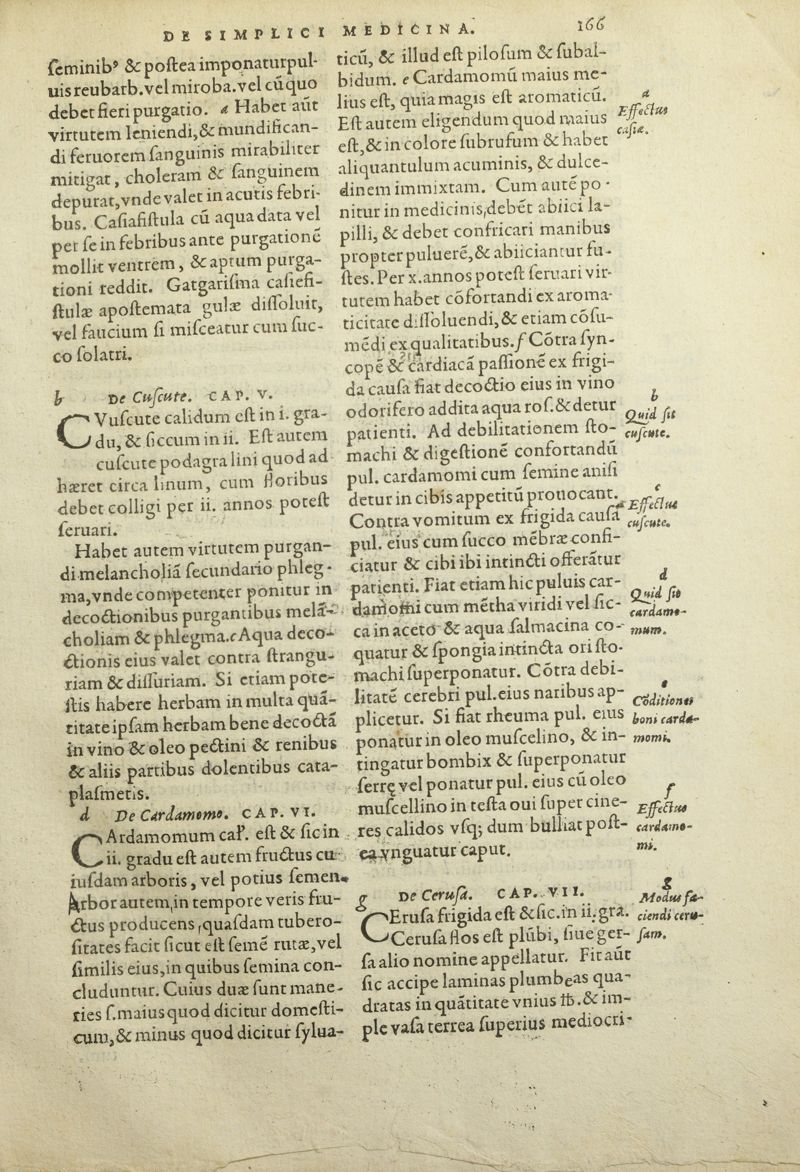 DE SIMPLICI MEDICINA. 166
ſeminibꝰ & poſtea imponatur pul-
uis reubarb. vel miroba. vel cū quo
debet fieri purgatio. a Habet aūt
virtutem leniendi, & mundifican-
di feruorem ſanguinis mirabiliter
mitigat, choleram & ſanguinem
depurat, vnde valet in acutis febri-
bus. Caſiafiſtula cū aqua data vel
per ſe in febribus ante purgationē
mollit ventrem, & aptum purga-
tioni reddit. Gatgariſma caſiefi-
ſtulæ apoſtemata gulæ diſſoluit,
vel faucium ſi miſceatur cum ſuc-
co ſolatri.
b De Cuſcute. CAP. V.
CVſcute calidum eſt in i. gra-
du, & ſiccum in ii. Eſt autem
cuſcute podagra lini quod ad
hæret circa linum, cum floribus
debet colligi per ii. annos poteſt
ſeruari.
Habet autem virtutem purgan-
di melancholiā ſecundario phleg-
ma, vnde competenter ponitur in
decoctionibus purgantibus melā-
choliam & phlegma. c Aqua deco-
ctionis eius valet contra ſtrangu-
riam & diſſuriam. Si etiam pote-
ſtis habere herbam in multa quā-
titate ipſam herbam bene decoctā
in vino & oleo pectini & renibus
& aliis partibus dolentibus cata-
plaſmetis.
d De Cardamomo. CAP. VI.
CArdamomum cal'. eſt & ſic in
ii. gradu eſt autem fructus cu
iuſdam arboris, vel potius ſemen.
Arbor autem, in tempore veris fru-
ctus producens, quaſdam tubero-
ſitates facit ſicut eſt ſemē rutæ, vel
ſimilis eius, in quibus ſemina con-
cluduntur. Cuius duæ ſunt mane-
ries ſ. maius quod dicitur domeſti-
cum, & minus quod dicitur ſylua-
ticū, & illud eſt piloſum & ſubal-
bidum. e Cardamomū maius me-
lius eſt, quia magis eſt aromaticū.
Eſt autem eligendum quod maius
eſt, & in colore ſubrufum & habet
aliquantulum acuminis, & dulce-
dinem immixtam. Cum autē po-
nitur in medicinis, debēt abiici la-
pilli, & debet confricari manibus
propter puluerē, & abiiciantur fu-
ſtes. Per x. annos poteſt ſeruari vir-
tutem habet cōfortandi ex aroma-
ticitate diſſoluendi, & etiam cōſu-
mēdi ex qualitatibus. f Cōtra ſyn-
copē & cardiacā paſſionē ex frigi-
da cauſa fiat decoctio eius in vino
odorifero addita aqua roſ. & detur
patienti. Ad debilitationem ſto-
machi & digeſtionē confortandū
pul. cardamomi cum ſemine aniſi
detur in cibis appetitū prouocant.
Contra vomitum ex frigida cauſa
pul. eius cum ſucco mēbræ confi-
ciatur & cibi ibi intincti offerātur
patienti. Fiat etiam hic puluis car-
damomi cum mētha viridi vel ſic-
ca in aceto & aqua ſalmacina co-
quatur & ſpongia intincta ori ſto-
machi ſuperponatur. Cōtra debi-
litatē cerebri pul. eius naribus ap-
plicetur. Si fiat rheuma pul. eius
ponatur in oleo muſcelino, & in-
tingatur bombix & ſuperponatur
ferrę vel ponatur pul. eius cū oleo
muſcellino in teſta oui ſuper cine-
res calidos vſq; dum bulliat poſt-
ea vnguatur caput.
g De Ceruſa. CAP. VII.
CEruſa frigida eſt & ſic. in ii. gra.
Ceruſa flos eſt plūbi, ſiue ger-
ſa alio nomine appellatur. Fit aūt
ſic accipe laminas plumbeas qua-
dratas in quātitate vnius ℔. & im-
ple vaſa terrea ſuperius mediocri-
a
Effectus
caſiæ.
b
Quid ſit
cuſcute.
c
Effectus
cuſcute.
d
Quid ſit
cardamo-
mum.
e
Cōditiones
boni carda-
momi.
f
Effectus
cardamo-
mi.
g
Modus fa-
ciendi ceru-
ſam.